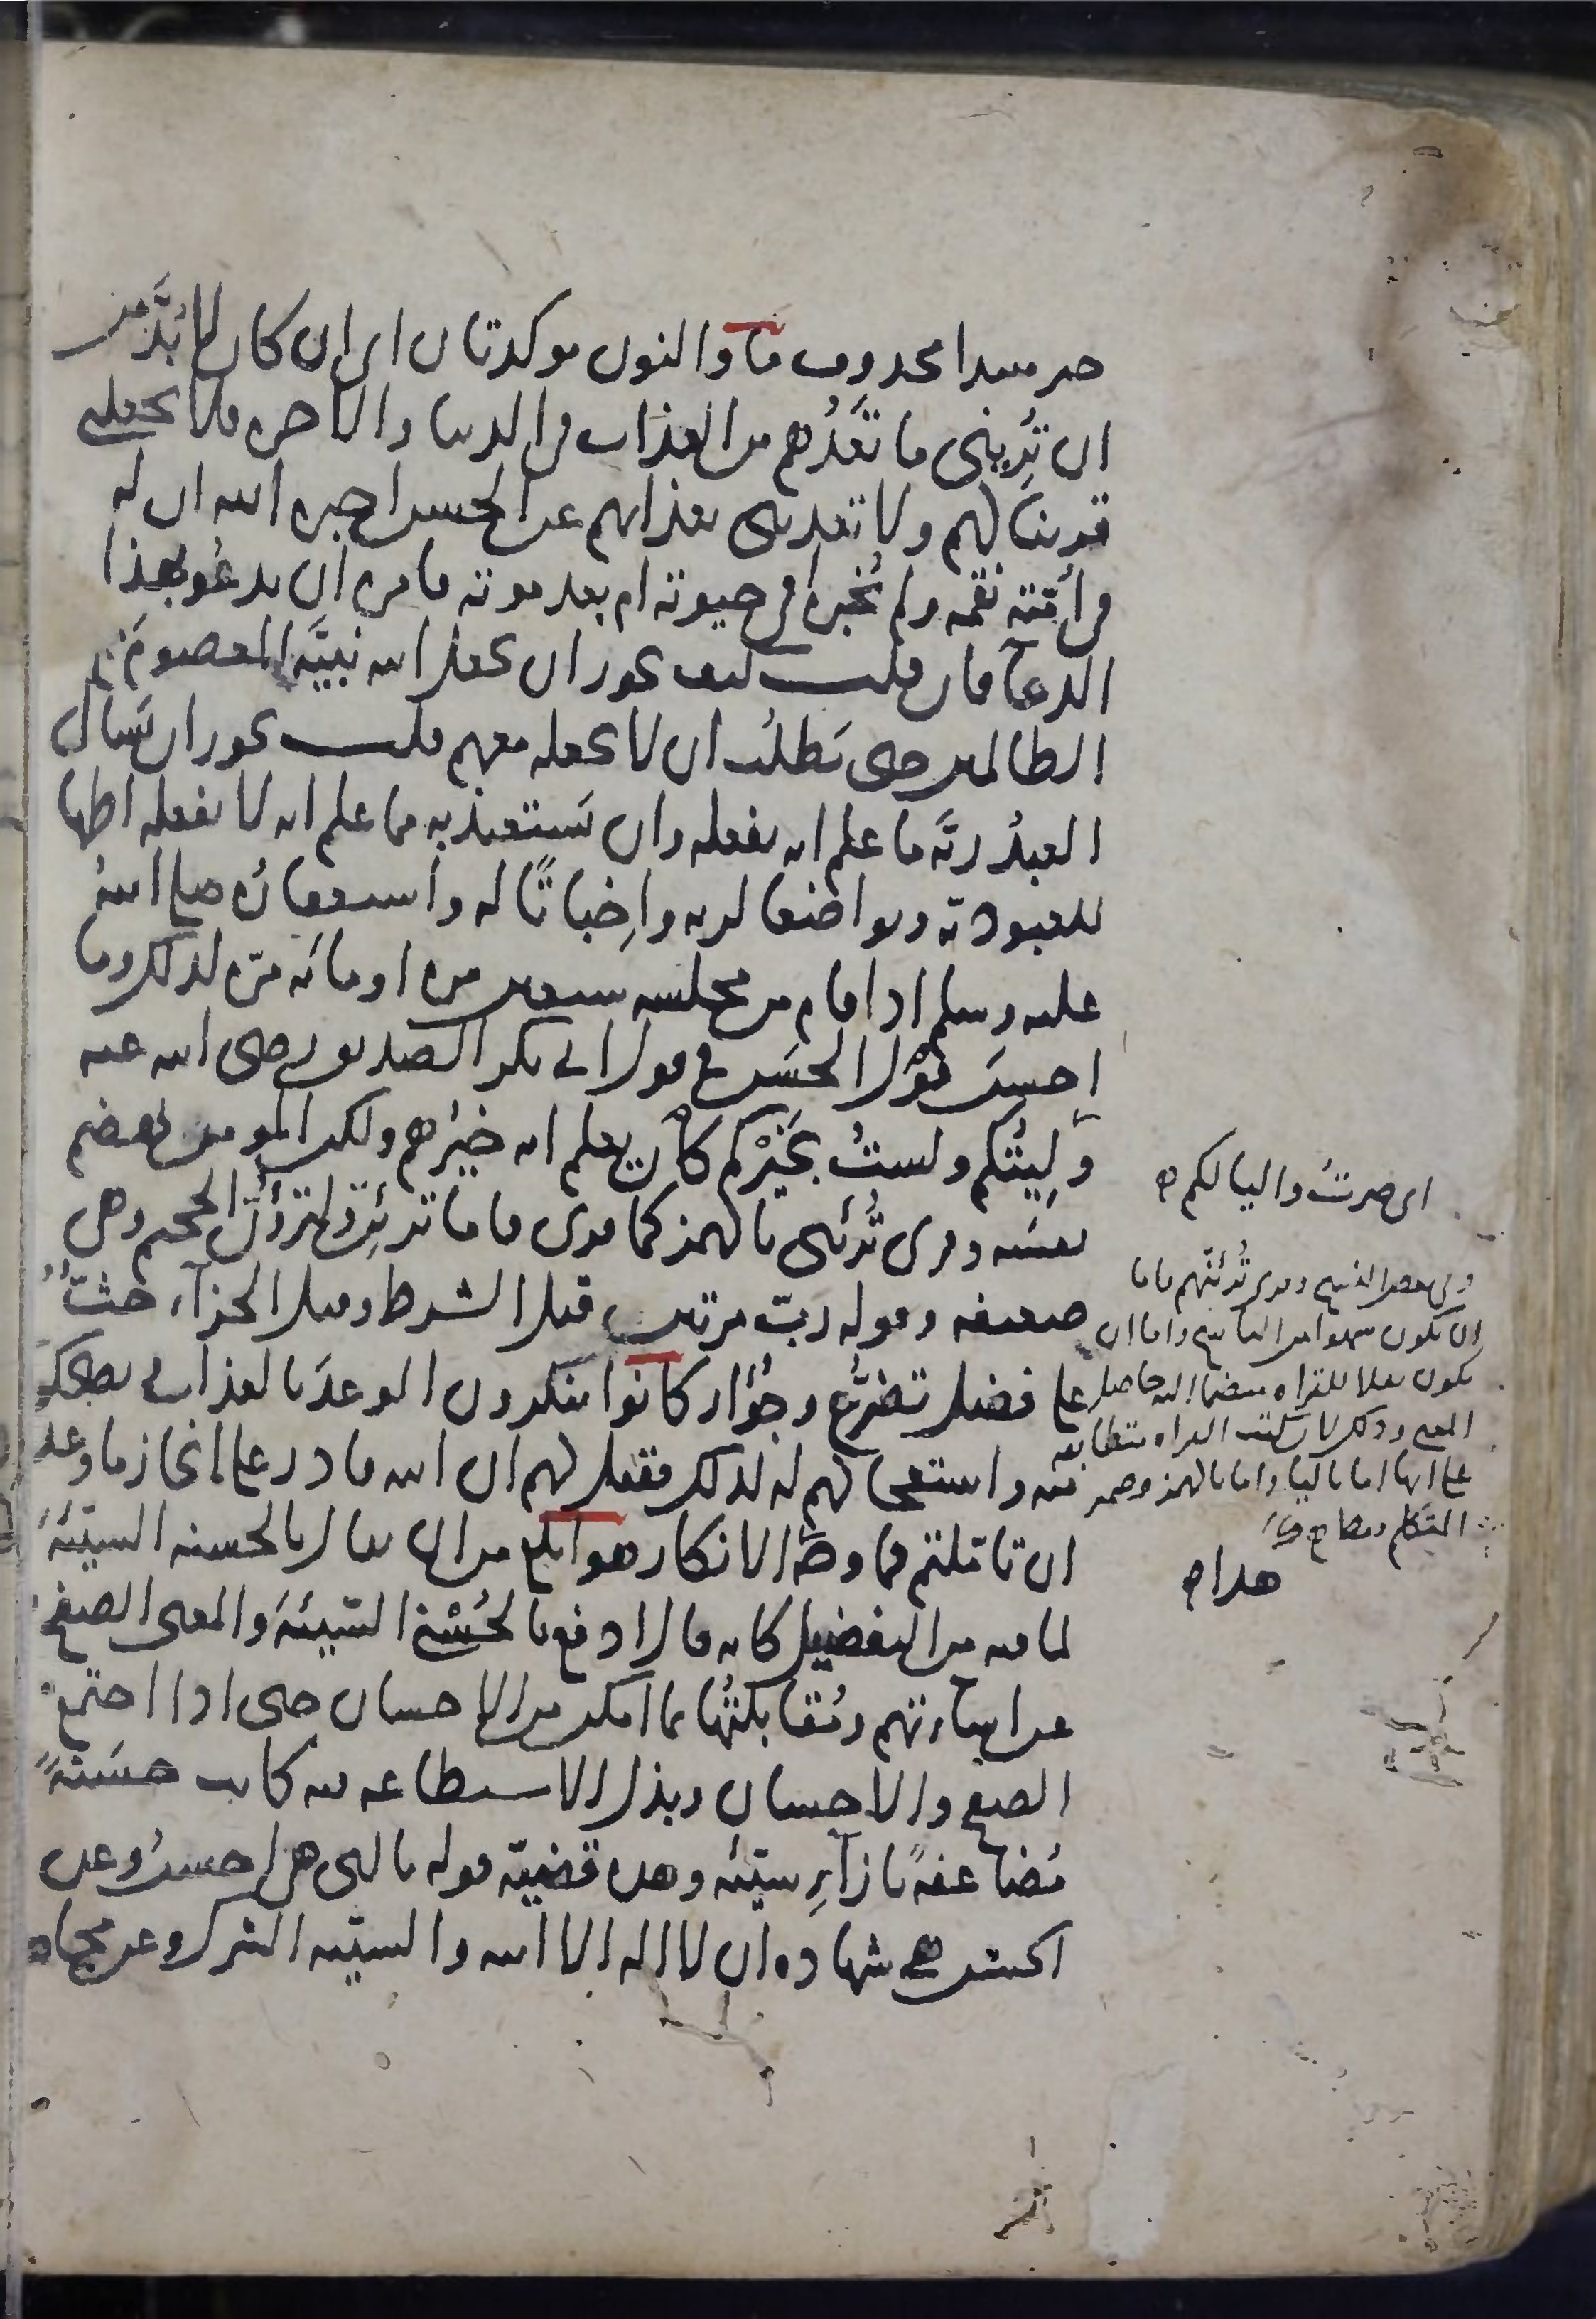 خبر مبتدا محذوف ما والنون موكدتان اى ان كان لا بُدَّ من
ان تُرِيَنى ما تَعِدُهم من العذاب فى الدنيا والاخره فلا تجعلنى
قرينًا لهم ولا تعذبنى بعذابهم عن الحسن اخبره الله ان له
فى أمّته نقمه ولم يُخبره افى حيوته ام بعد موته فامره ان يدعُو بهذا
الدعآ فان قلت كيف يجوز ان يجعل الله نبيَّه المعصومَ مع
الظالمين حتى يَطلُب ان لا يجعله معهم قلت يجوز ان يَسال
العبدُ ربَّه ما علم انه يفعله وان يَستعيذ به مما علم انه لا يفعله اظهارا
للعبودية وتواضعا لربه واِخباتًا له واستغفارُه صلى اللهُ
عليه وسلم اذا قام من مجلسه سبعين مره او مائه مرّه لذلك وما
احسنَ قَوْلَ الحسَن فى قول ابى بكر الصديق رضى الله عنه
وَلِيتُكم ولستُ بخَيْركم كان يعلم انه خيْرُهم ولكن المومن يهضم
نفسَه وقرى تُرئنى بالهمز كما قرى فاما ترئِنّ ولترؤُنّ الجحيم وهى
ضعيفه وقوله ربّ مرتين قبل الشرط وقبل الجزآء حثٌّ
على فضل تضرُّع وجُؤار كانوا ينكرون الوعدَ بالعذاب ويضحكون
منه واستعجالهم له لذلك فقيل لهم ان الله قادر على انجاز ما وعد
ان تاملتم فما وجه الانكار هو ابلغ من ان يقال بالحسنه السيّئهَ
لما فيه من التفضيل كانه قال ادفع بالحُسْنى السّيئهَ والمعنى الصفح
عن اساءتهم ومُقابلتُها بما امكن من الاحسان حتى اذا اجتمع
الصفح والاحسان وبذل الاستطاعه فيه كانت حسَنهً
مُضاعفهً بازآءِ سيّئه وهذه قضيّة قوله بالتى هى احسنُ وعن
الحسن هى شهاده ان لا اله الا الله والسيّئه الشرك وعن مجاهد
اى صرتُ واليا لكم
وفى بعض النسخ وقرى تُرئنّهم فاما
ان يكون سهوا من الناسخ واما ان
يكون نقلا للقراه
المعنى وذلك لان كتب القراه متطابقه
على انها اما باليا واما بالهمز وضمير
المتكلم